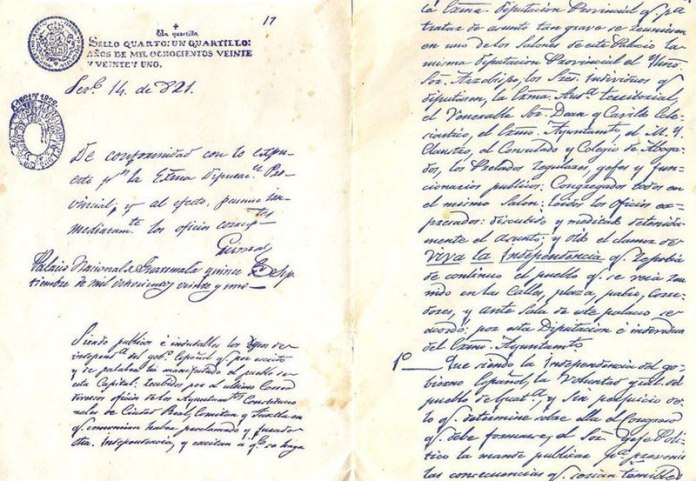 17
Un quartillo
SELLO QUARTO: UN QUARTILLO:
AÑOS DE MIL OCHOCIENTOS VEINTE
Y VEINTE Y UNO.
14. de 821.
De conformidad con lo expu-
esto pr. la Exma Diputacn. Pro-
vincial, y al efecto, pasense in-
mediatamte. los oficios
Palacio Nacional de Guatemala quince de Sep
tiembre de mil ochocientos veinte y uno
Siendo publicos é indudables los deseos de
independa. del gobo. Español q. por escrito
y de palabra ha manifestado el pueblo de
esta Capital: Recibidos por el ultimo Correo
diversos oficios de los Ayuntamtos Constitucio-
nales de Ciudad Real, Comitan y Tuxtla en
q. comunican haber proclamado y jurado
dha. Independencia, y excitan a q. se haga
la Exma. Diputacion Provincial q. pa.
tratar de asunto tan grave se reuniesen
en uno de los Salones de este Palacio la
misma Diputacion Provincial el Ylmo.
Sor. Arzobispo, los Sres. Individuos q.
diputasen, la Exma. Auda. territorial,
el Venerable Sor. Dean y Cavildo Ecle-
siastico, el Exmo. Ayuntamto, el M. Y.
Claustro, el Consulado y Colegio de Aboga-
dos, los Prelados regulares, gefes y fun-
cionarios publicos. Congregados todos en
el mismo Salon: leidos los oficios ex-
presados: discutido y meditado detenida-
mente el asunto; y oido el clamor de
Viva la Independencia q. repetia
de continuo el pueblo q. se veia reu-
nido en las Calles, plaza, patio, Corre-
dores, y ante Sala de este palacio se
acordó: por esta Diputacion é individuos
del Exmo. Ayuntamto.
1o. Que siendo la Independencia del go-
bierno Español, la Voluntad gral. del
pueblo de Guata. y sin perjuicio de
lo q. determine sobre ella el Congreso
q. debe formarse, el Sor. Gefe Poli-
tico la mande publicar pa. prevenir
las consecuencias q. serian temibles